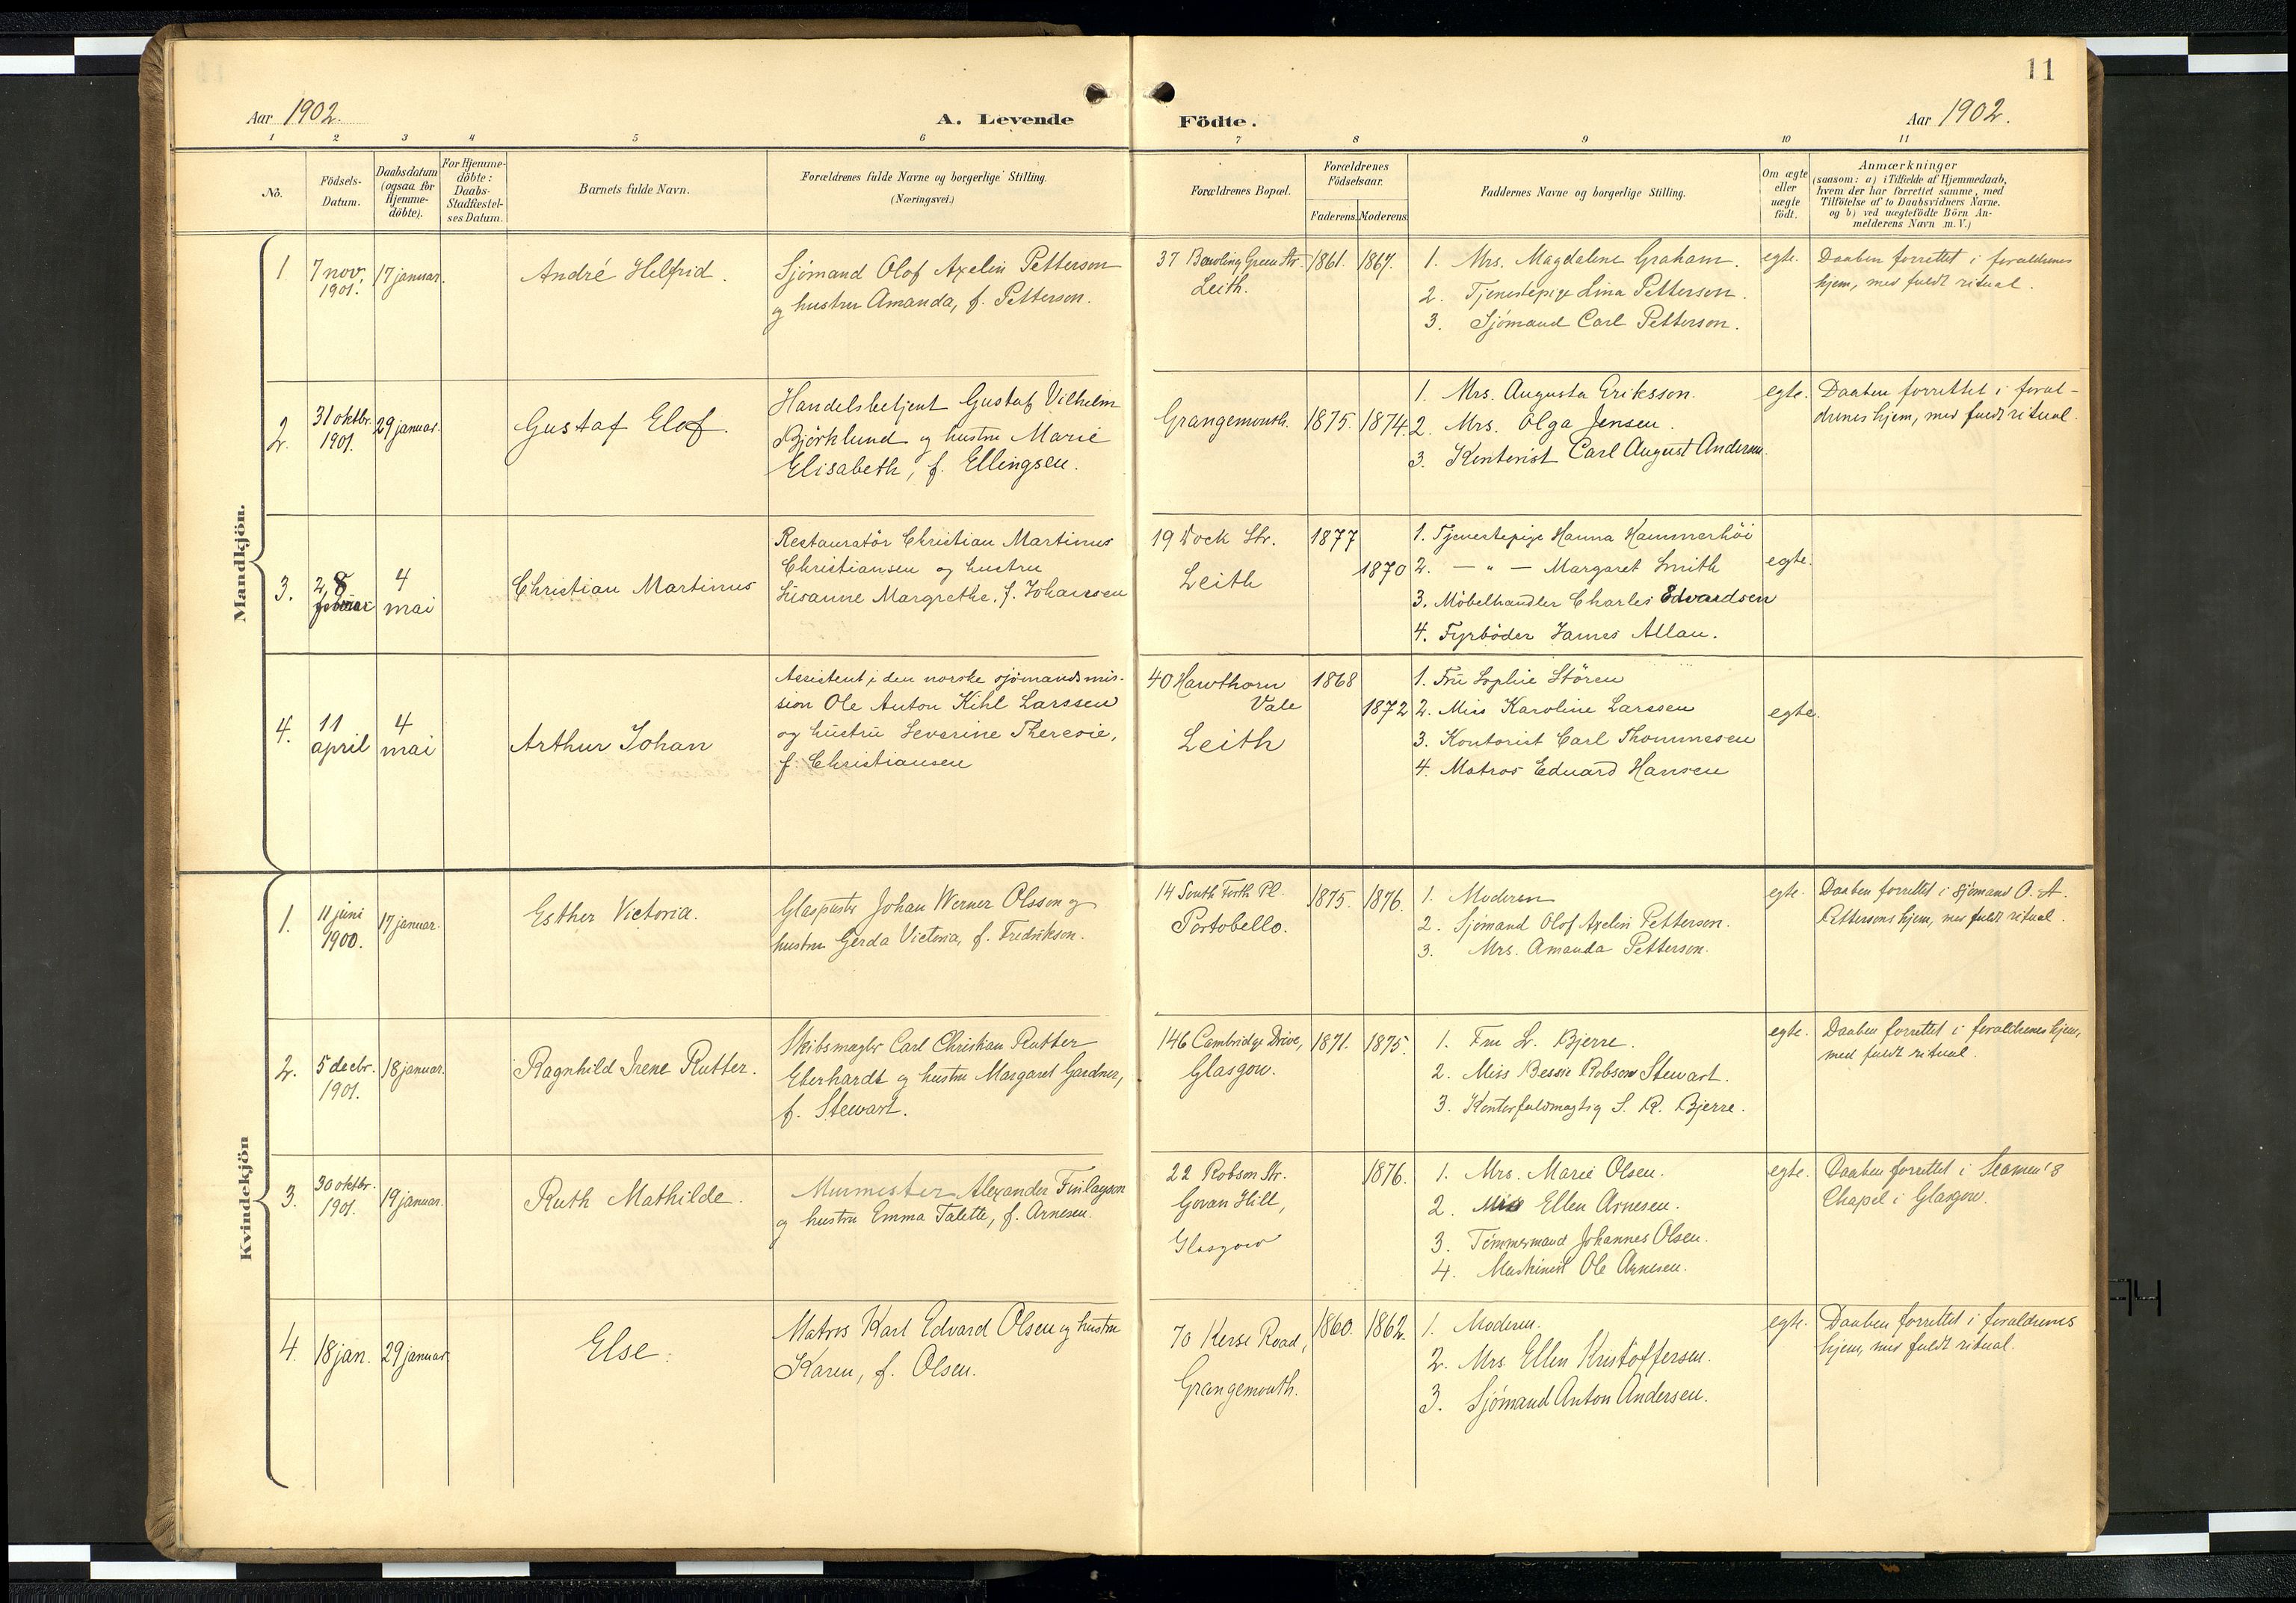 11
Aar 1902.
A. Levende Födte.
Aar 1902.
1 2 3 4 5 6 7 8 9 10 11
Nò.
Födsels-
Datum.
Daabsdatum
(ogsaa for
Hjemme-
döbte).
For Hjemme-
döbte:
Daabs-
Stadfæstel-
ses Datum.
Barnets fulde Navn.
Forældrenes fulde Navne og borgerlige Stilling.
(Næringsvei.)
Forældrenes Bopæl.
Forældrenes
Födselsaar.
Faderens. Moderens.
Faddernes Navne og borgerlige Stilling.
Om ægte
eller
uægte
födt.
Anmærkninger
(saasom: a) i Tilfælde af Hjemmedaab,
hvem der har forrettet samme, med
Tilföielse af to Daabsvidners Navne.
og b) ved uægtefödte Börn An-
melderens Navn m.V.)
Mandkjön.
1
7 nov.
1901.
17 januar.
André Helfrid.
Sjömand Olof Axelin Petterson
og hustru Amanda, f. Petterson.
37 Bowling Green Str.
Leith.
1861. 1867.
1. Mrs. Magdalene Graham.
2. Tjenestepige Lina Petterson.
3. Sjömand Carl Petterson.
egte.
Daaben forrettet i forældrenes
hjem, med fuldt ritual.
2.
31 oktbr.
1901.
29 januar.
Gustaf Elof.
Handelsbetjent Gustaf Vilhelm
Björklund og hustru Marie
Elisabeth, f. Ellingsen.
Grangemouth.
1875. 1874.
1. Mrs. Augusta Eriksson.
2. Mrs. Olga Jensen.
3. Kontorist Carl August Andersen.
egte.
Daaben forrettet i foræl-
drenes hjem, med fuldt ritual.
3.
28
februar
4
mai
Christian Martinus
Restauratör Christian Martinus
Christiansen og hustru
Susanne Margrethe, f. Johansen
19 Dock Str.
Leith
1877
1870
1. Tjenestepige Hanna Hammerhöi
2. — " — Margaret Smith
3. Möbelhandler Charles Edvardsen
4. Fyrböder James Allan.
egte.
4.
11
april
4
mai
Arthur Johan
Assistent i den norske sjömandsmis-
sion Ole Anton Kihl Larssen
og hustru Severine Theresie,
f. Christiansen
40 Hawthorn
Vale
Leith
1868
1872
1. Fru Sophie Stören
2. Miss Karoline Larssen
3. Kontorist Carl Thommesen
4. Matros Eduard Hansen
egte.
Kvindekjön
1.
11 juni
1900.
17 januar.
Esther Victoria.
Glaspuster Johan Werner Olsson og
hustru Gerda Victoria, f. Fredrikson.
14 South Forth Pl.
Portobello.
1875. 1876.
1. Moderen
2. Sjömand Olof Axelin Petterson.
3. Mrs. Amanda Petterson.
egte.
Daaben forrettet i sjömand O. A.
Pettersons hjem, med fuldt ritual.
2.
5 decbr.
1901.
18 januar.
Ragnhild Irene Rutter.
Skibsmægler Carl Christian Rutter
Eberhardt og hustru Margaret Gardner,
f. Stewart.
146 Cambridge Drive,
Glasgow.
1871. 1875.
1. Fru L. Bjerre.
2. Miss Bessie Robson Stewart.
3. Kontorfuldmægtig S. R. Bjerre.
egte.
Daaben forrettet i forældrenes hjem,
med fuldt ritual.
3.
30 oktbr.
1901.
19 januar.
Ruth Mathilde.
Murmester Alexander Finlayson
og hustru Emma Talette, f. Arnesen.
22 Robson Str.
Govan Hill,
Glasgow
1876.
1. Mrs. Marie Olsen.
2. Miss Ellen Arnesen.
3. Tömmermand Johannes Olsen.
4. Maskinist Ole Arnesen.
egte.
Daaben forrettet i Seamen's
Chapel i Glasgow.
4.
18 jan.
29 januar
Else.
Matros Karl Edvard Olsen og hustru
Karen, f. Olsen.
70 Kerse Road,
Grangemouth.
1860. 1862.
1. Moderen.
2. Mrs. Ellen Kristoffersen.
3. Sjömand Anton Andersen.
egte.
Daaben forrettet i forældrenes
hjem, med fuldt ritual.